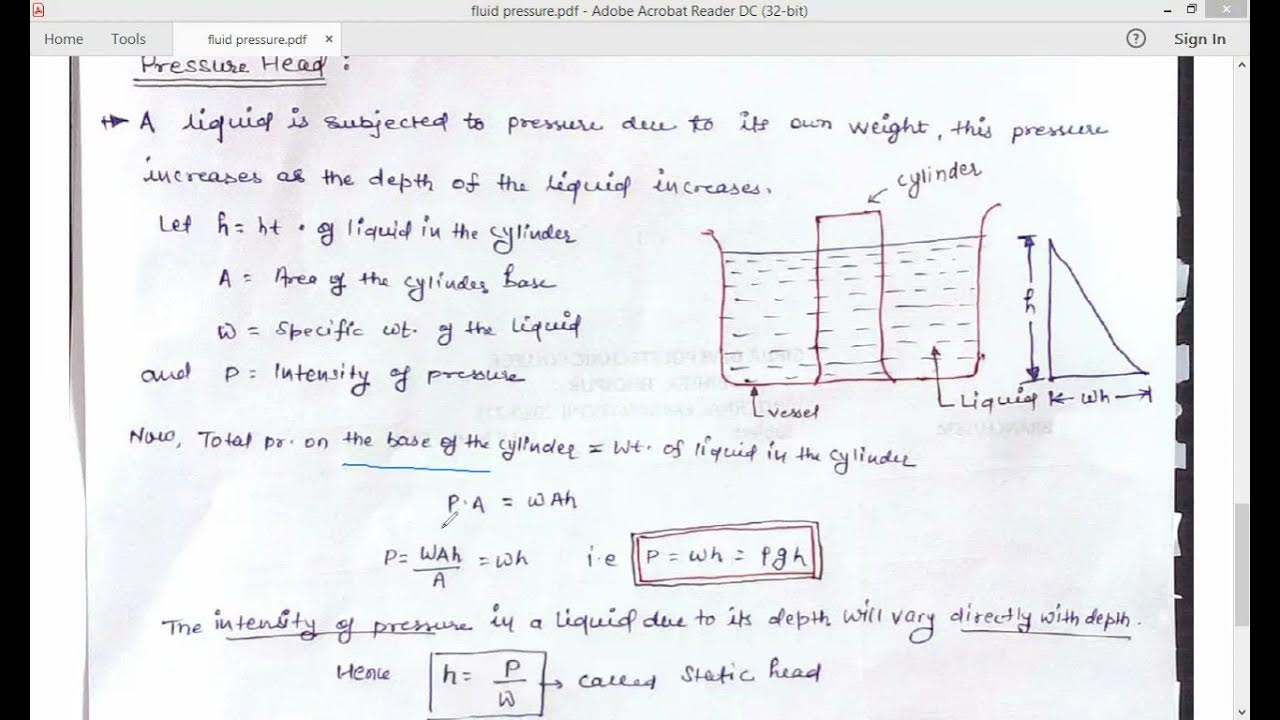 fluid pressure.pdf - Adobe Acrobat Reader DC (32-bit)
Home Tools fluid pressure.pdf × ? Sign In
Pressure Head :
A liquid is subjected to pressure due to its own weight, this pressure
increases as the depth of the liquid increases.
cylinder
Let h = ht. of liquid in the cylinder
A = Area of the cylinder base
h
w = Specific wt. of the liquid
and P = Intensity of pressure
vessel
Liquid
wh
Now, Total pr. on the base of the cylinder = wt. of liquid in the cylinder
P.A = wAh
P = wAh/A = wh i.e P = wh = ρgh
The intensity of pressure in a liquid due to its depth will vary directly with depth.
Hence h = P/w → called static head